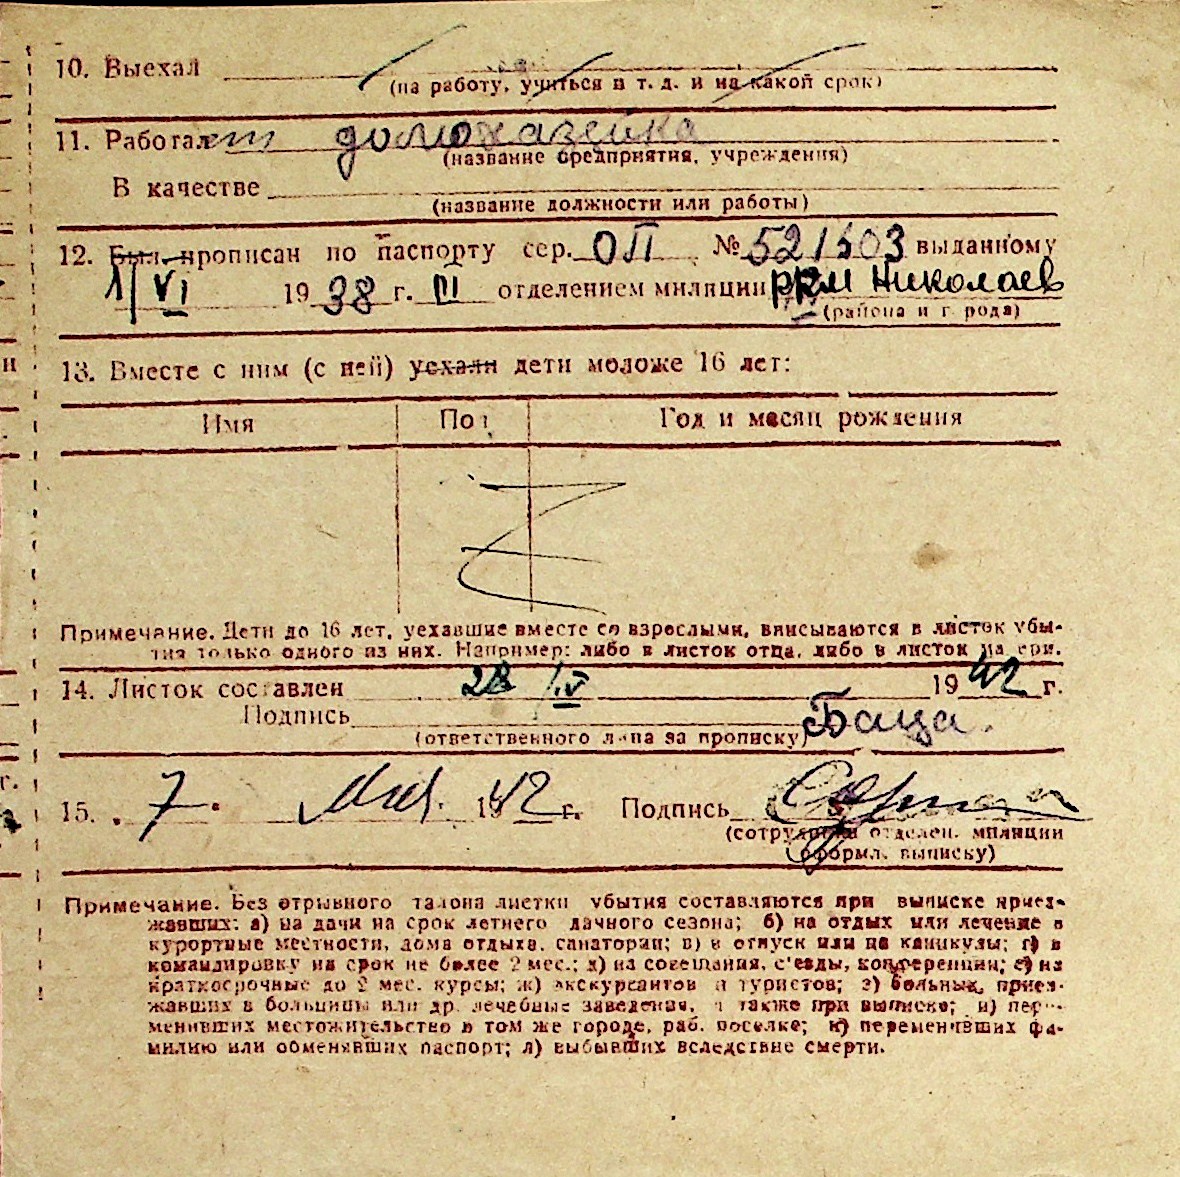 10. Выехал
(на работу, учиться и т. д. и на какой срок)
11. Работает домохазейка
(название предприятия, учреждения)
В качестве
(название должности или работы)
12. Был прописан по паспорту сер. ОП № 521503 выданному
1/VI 1938 г. III отделением милиции РКМ Николаев
(района и города)
13. Вместе с ним (с ней) уехали дети моложе 16 лет:
Имя Пол Год и месяц рождения
Примечание. Дети до 16 лет, уехавшие вместе со взрослыми, вписываются в листок убы-
тия только одного из них. Например: либо в листок отца, либо в листок матери.
14. Листок составлен 28 IV 1942 г.
Подпись Баца.
(ответственного лица за прописку)
15. 7. Мая. 1942 г. Подпись
(сотрудника отделен. милиции
оформл. выписку)
Примечание. Без отрывного талона листки убытия составляются при выписке приез-
жавших: а) на дачи на срок летнего дачного сезона; б) на отдых или лечение в
курортные местности, дома отдыха, санатории; в) в отпуск или на каникулы; г) в
командировку на срок не более 2 мес.; д) на совещания, с'езды, конференции; е) на
краткосрочные до 2 мес. курсы; ж) экскурсантов и туристов; з) больных, приез-
жавших в больницы или др. лечебные заведения, а также при выписке; и) пере-
менивших местожительство в том же городе, раб. поселке; к) переменивших фа-
милию или обменявших паспорт; л) выбывших вследствие смерти.